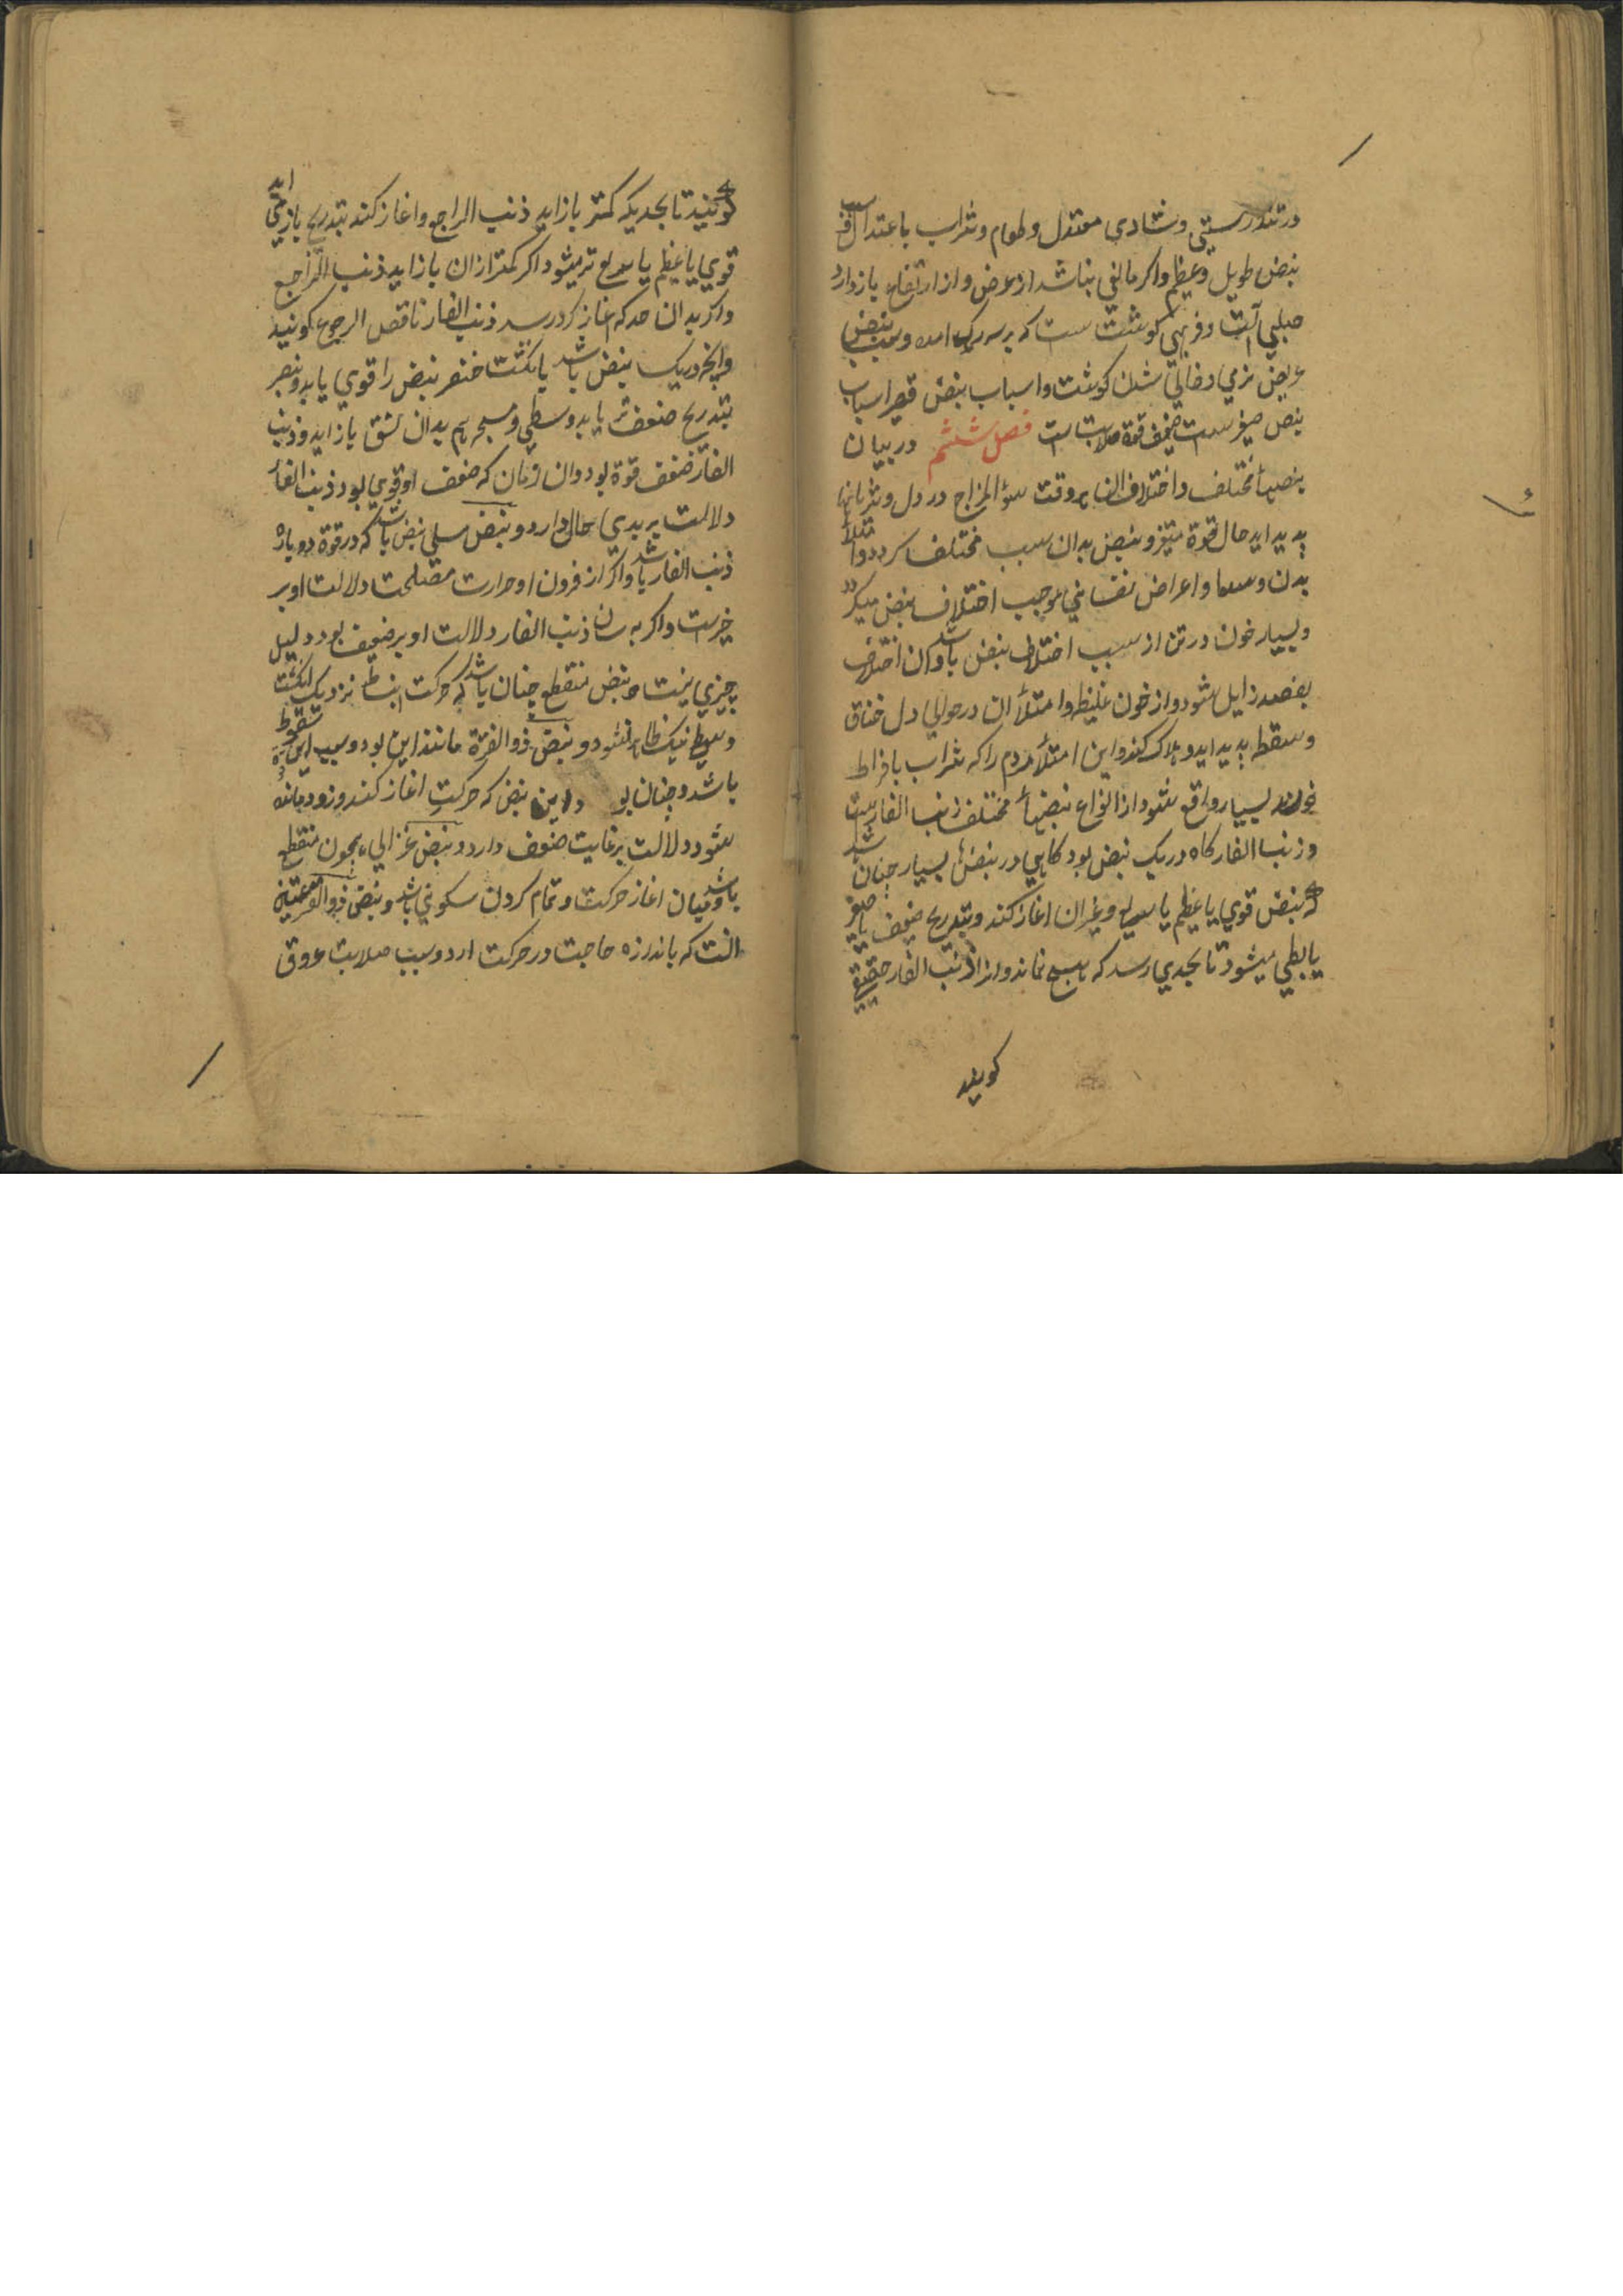 در تندرستی و شادی معتدل و طعام و شراب باعتدال سبب
نبض طویل و عظیم واکر مانعی نباشد از عرض و از ارتفاع بازدارد
صلبی آلت و فربهی کوشت است که بر سر رک امده و سبب نبض
عریض نرمی و خالی شدن کوشت و اسباب نبض قصیر اسباب
نبض صغیرست ضعف قوة صلابت الت فصل ششم در بیان
نبضهاء مختلف و اختلاف ان هر وقت سؤ المزاج در دل و شریانها
پدید اید حال قوة متغیر و نبض بدان سبب مختلف کردد و امتلاء
بدن و اعراض نفسانی موجب اختلاف نبض میکردد
و بسیار خون در تن از سبب اختلاف نبض باشد و ان اختلاف
بفصد زایل شود و از خون غلیظ و امتلاء ان در حوالی دل خناق
و سقطه پدید اید و هلاک کند و این امتلاء مردم را که شراب بافراط
خورند بسیار واقع شود از انواع نبضهاء مختلف ذنب الفارست
و ذنب الفار کاه در یک نبض بود کاهی در نبضها بسیار چنان باشد
که نبض قوی یا عظیم یا سریع و غیر ان اغاز کند و بتدریج ضعیف یا صغیر
یا بطی میشود تا بحدی رسد که هیچ نماند و انرا ذنب الفار حقیقی
کویند
کویند تا بحدیکه کمتر بازاید ذنب الراجع و اغاز کند بتدریج باز می اید
قوی یا عظیم یا سریع تر میشود اکر کمتر از ان بازاید ذنب الراجع
واکر بدان حد که اغاز کرد رسد ذنب الفار ناقص الرجوع کویند
وانچه در یک نبض باشد یا انکشت خنصر نبض را قوی یابد و بنصر
بتدریج ضعف تر یابد وسطی و مسبحه هم بدان نسق بازاید و ذنب
الفار ضعف قوة بود و ان زمان که ضعف او قوی بود ذنب الفار
دلالت بر بدی حال دارد و نبض مسلی نبض باشد که در قوة دوباره
ذنب الفار باشد واکر از فزون او حرارت مصلحت دلالت او بر
خیرست واکر به سان ذنب الفار دلالت او بر ضعیف بود دلیل
چیزی نیست و نبض منقطع چنان باشد که حرکت انبساط نزدیک انکشت
وسطی نیک ظاهر نشود و نبض ذو الفترة مانند این بود و سبب این سقوط قوة
باشد و چنان بود این نبض که حرکت اغاز کند و زود مانده
شود و دلالت بر غایت ضعف دارد و نبض غزالی همچون منقطع
باشد و میان اغاز حرکت و تمام کردن سکونی باشد و نبض ذو القرعتین
انست که باندازه حاجت در حرکت ارد و سبب صلابت عروق